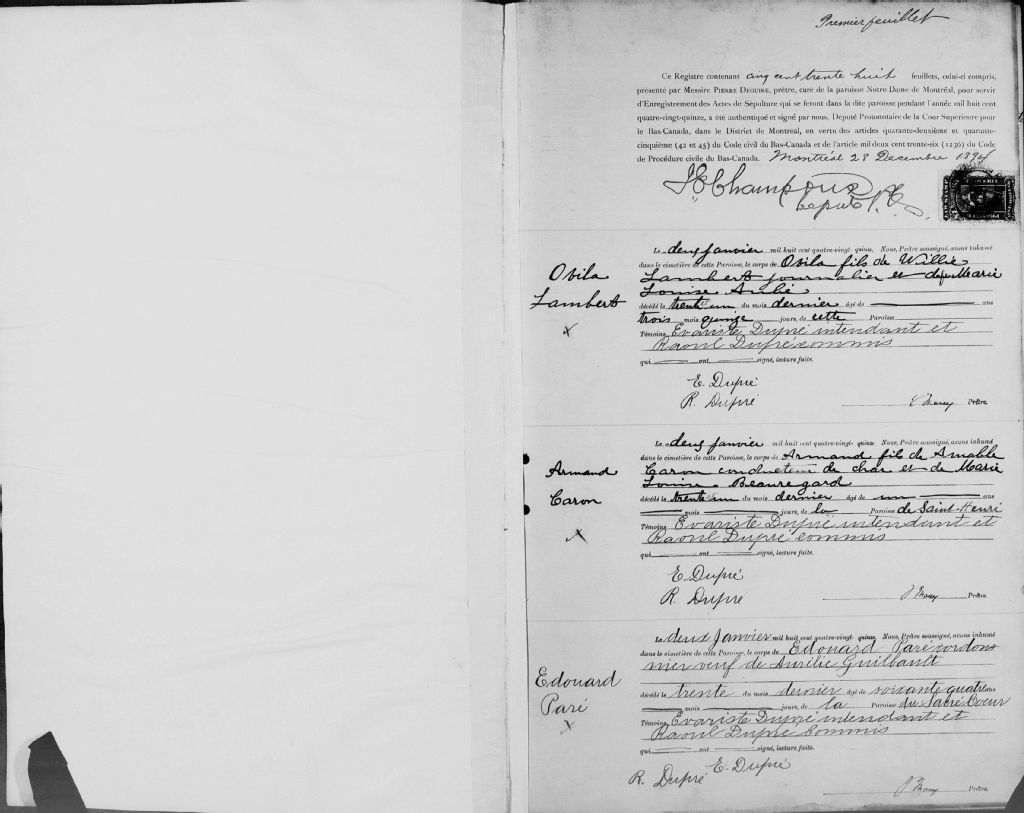 Premier feuillet
Ce Registre contenant cinq cent trente huit feuillets, celui-ci compris,
présenté par Messire PIERRE DEGUIRE, prêtre, curé de la paroisse Notre Dame de Montréal, pour servir
d'Enregistrement des Actes de Sépulture qui se feront dans la dite paroisse pendant l'année mil huit cent
quatre-vingt-quinze, a été authentiqué et signé par nous, Député Protonotaire de la Cour Supérieure pour
le Bas-Canada, dans le District de Montréal, en vertu des articles quarante-deuxième et quarante-
cinquième (42 et 45) du Code civil du Bas-Canada et de l'article mil deux cent trente-six (1236) du Code
de Procédure civile du Bas-Canada. Montréal 28 Decembre 1894
Ovila
Lambert
x
Le deux janvier mil huit cent quatre-vingt-quinze, Nous, Prêtre soussigné, avons inhumé
dans le cimetière de cette Paroisse, le corps de Ovila fils de Willie
Lambert journalier et de Marie
Louise
décédé le trente un du mois dernier âgé de ans
trois mois quinze jours, de cette Paroisse
Témoins Evariste Dupré intendant et
Raoul Dupré commis
qui ont signé, lecture faite.
E. Dupré
R. Dupré
Prêtre.
Armand
Caron
x
Le deux janvier mil huit cent quatre-vingt-quinze, Nous, Prêtre soussigné, avons inhumé
dans le cimetière de cette Paroisse, le corps de Armand fils de Amable
Caron conducteur de char et de Marie
Louise Beauregard
décédé le trente un du mois dernier âgé de un ans
mois jours, de la Paroisse de Saint-Henri
Témoins Evariste Dupré intendant et
Raoul Dupré commis
qui ont signé, lecture faite.
E. Dupré
R. Dupré
Prêtre.
Edouard
Paré
x
Le deux Janvier mil huit cent quatre-vingt-quinze, Nous, Prêtre soussigné, avons inhumé
dans le cimetière de cette Paroisse, le corps de Edouard Paré cordon
nier veuf de Aurélie Guilbault
décédé le trente du mois dernier âgé de soixante quatre ans
mois jours, de la Paroisse du Sacré Coeur
Témoins Evariste Dupré intendant et
Raoul Dupré Commis
qui ont signé, lecture faite.
E. Dupré
R. Dupré
Prêtre.